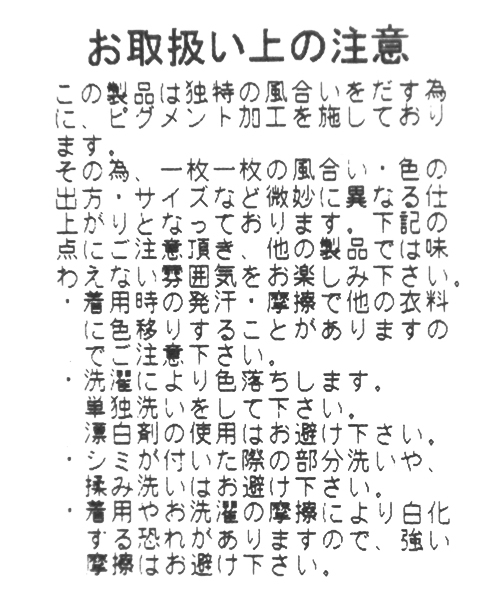 お取扱い上の注意
この製品は独特の風合いをだす為
に、ピグメント加工を施しており
ます。
その為、一枚一枚の風合い・色の
出方・サイズなど微妙に異なる仕
上がりとなっております。下記の
点にご注意頂き、他の製品では味
わえない雰囲気をお楽しみ下さい。
・着用時の発汗・摩擦で他の衣料
に色移りすることがありますの
でご注意下さい。
・洗濯により色落ちします。
単独洗いをして下さい。
漂白剤の使用はお避け下さい。
・シミが付いた際の部分洗いや、
揉み洗いはお避け下さい。
・着用やお洗濯の摩擦により白化
する恐れがありますので、強い
摩擦はお避け下さい。